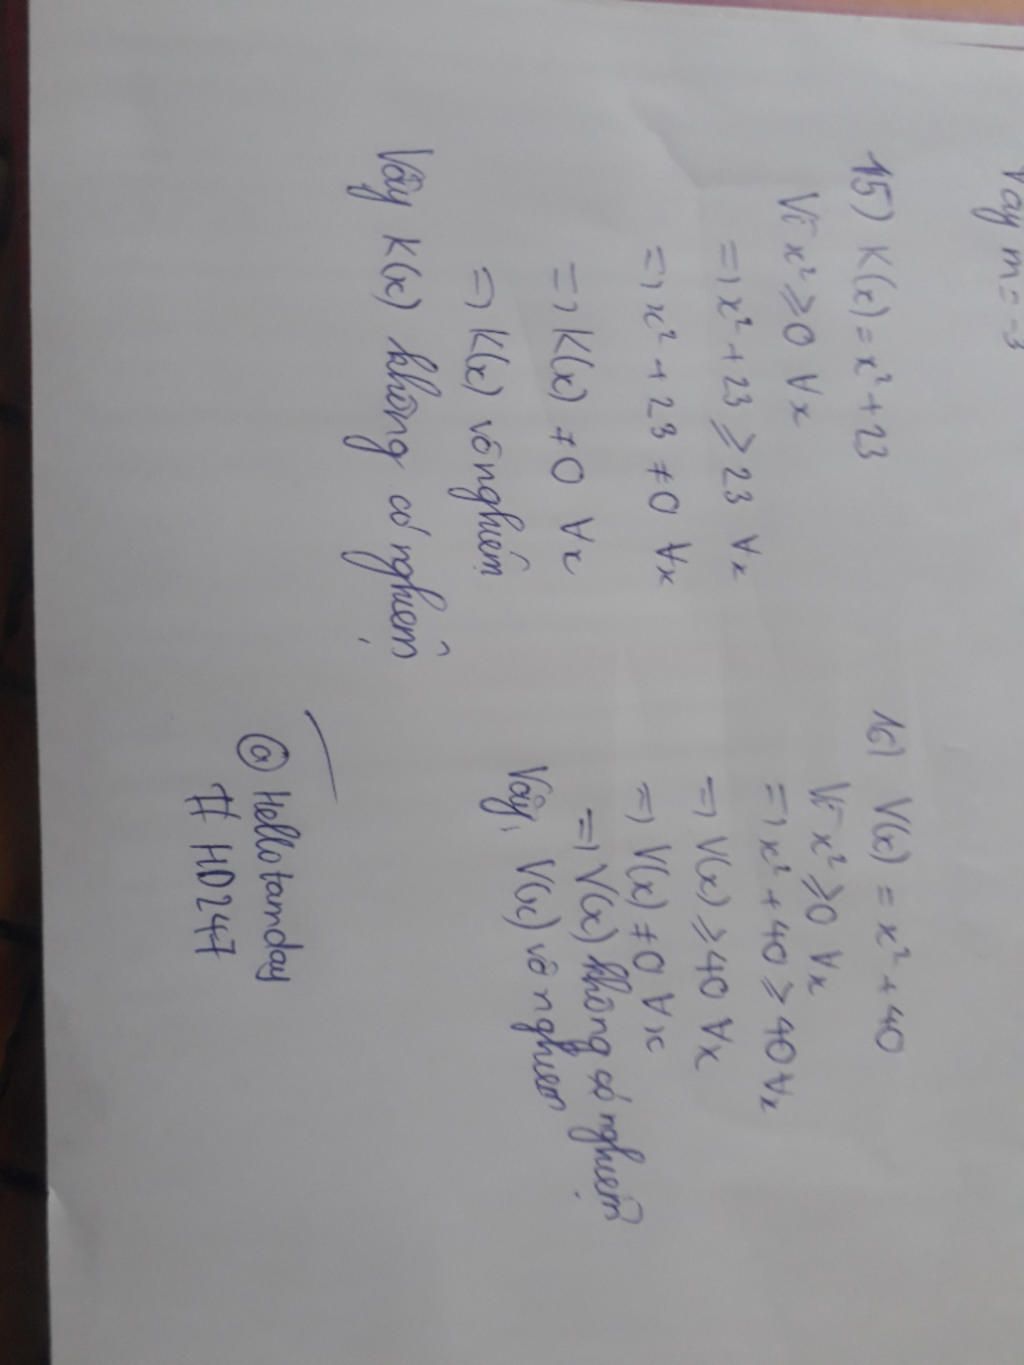 Vậy m = -3
15) K(x) = x² + 23
Vì x² ≥ 0 ∀x
=> x² + 23 ≥ 23 ∀x
=> x² + 23 ≠ 0 ∀x
=> K(x) ≠ 0 ∀x
=> K(x) vô nghiệm
Vậy K(x) không có nghiệm
16) V(x) = x² + 40
Vì x² ≥ 0 ∀x
=> x² + 40 ≥ 40 ∀x
=> V(x) ≥ 40 ∀x
=> V(x) ≠ 0 ∀x
=> V(x) không có nghiệm
Vậy, V(x) vô nghiệm
@ Hellotamday
# HD247